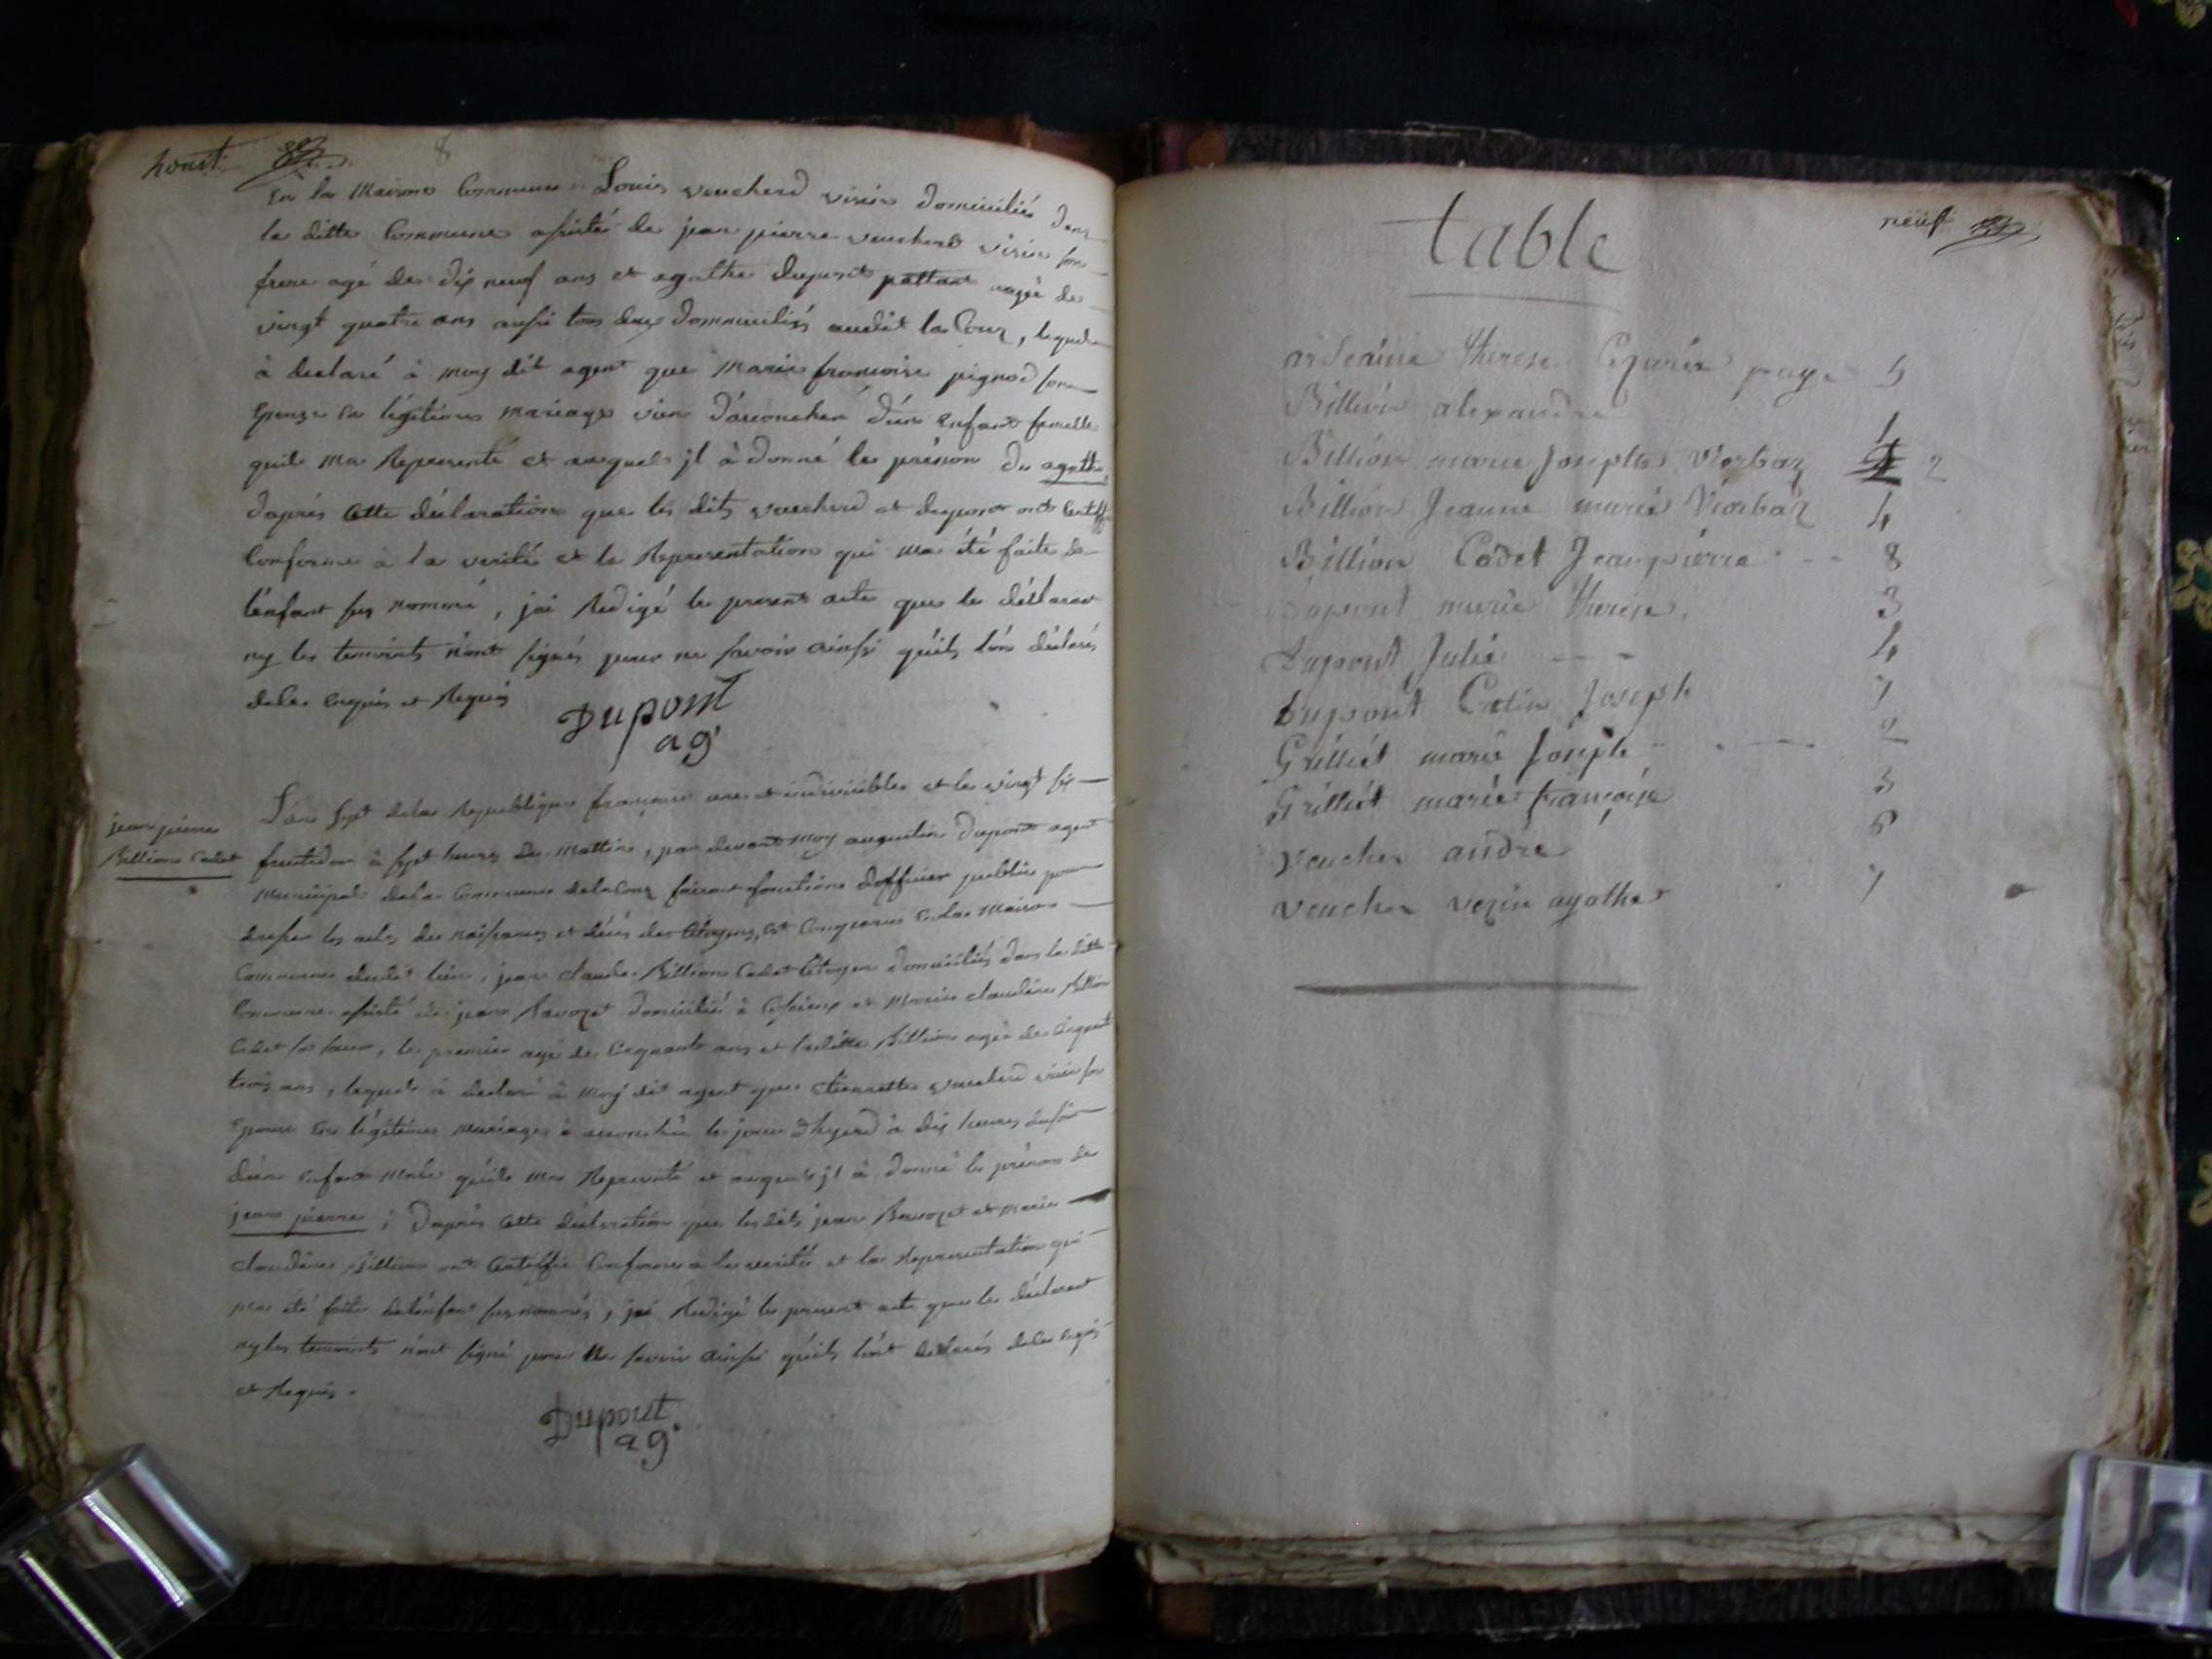 huit
8
En la Maison Commune Louis voucherd visin domicilié dans
la ditte Commune assisté de jean pierre voucherd visin son
frere agé de dix neuf ans et agathe dupont pattant agée de
vingt quatre ans aussi tous deux domiciliés audit la Cour, lequel
à declaré à moy dit agent que Marie francoise pignod son
Epouse en légitime mariage vien d'accoucher d'un enfant femelle
quil ma Representé et auquel jl à donné le prénom de agathe
daprés cette déclaration que les dits voucherd et dupont ont Certiffié
Conforme à la verité et la Representation qui ma été faite de
l'enfant sus nommé, jai Redigé le present acte que le déclarant
ny les temoints n'ont signés pour ne savoir ainsi qu'ils l'on déclarés
dela enquis et Requis
Dupont
ag.
jean pierre
Billion Cadet
L'an sept dela Republique francaise une et indivisible et le vingt six
fructidor à sept heures du mattin, par devant moy augustin Dupont agent
municipal dela Commune dela Cour faisant fonctions d'officier public pour
dresser les actes de naissances et décés des Citoyens, est Comparu en la Maison
Commune dudit lieu, jean claude Billion Cadet Citoyen domicilié dans la ditte
Commune assisté de jean Ravozet domicilié à et Marie claudine Billion
Cadet sa sœur, le premier agé de Cinquante ans et ladite Billion agée de Cinquante
trois ans, lequel à declaré à moy dit agent que etiennette voucherd visin son
Epouse en légitime mariage à accouchée le jour d'hyerd à dix heures du soir
d'un enfant male qu'il ma Representé et auquel jl à donné le prénom de
jean pierre ; daprés cette déclaration que les dits jean Ravozet et Marie
claudine Billion ont Certiffié Conforme à la verité et la Representation qui
ma été faite de l'enfant sus nommés, jai Redigé le present acte que le déclarant
ny les temoints n'ont signé pour ne savoir ainsi qu'ils l'ont déclarés dela enquis
et Requis.
Dupont
ag.
neuf
table
therese page 5
Billion alexandre 1
Billion marie Josephte Viorbaz 2
Billion Jeanne marie Viorbaz 4
Billion Cadet Jeanpierre 8
Dupont marie therese 3
Dupont Julie 4
Dupont Cretin Joseph 7
Grilliet marie Josephte 2
Grilliet marie françoise 3
voucher andre 6
voucher vezin agathe 7